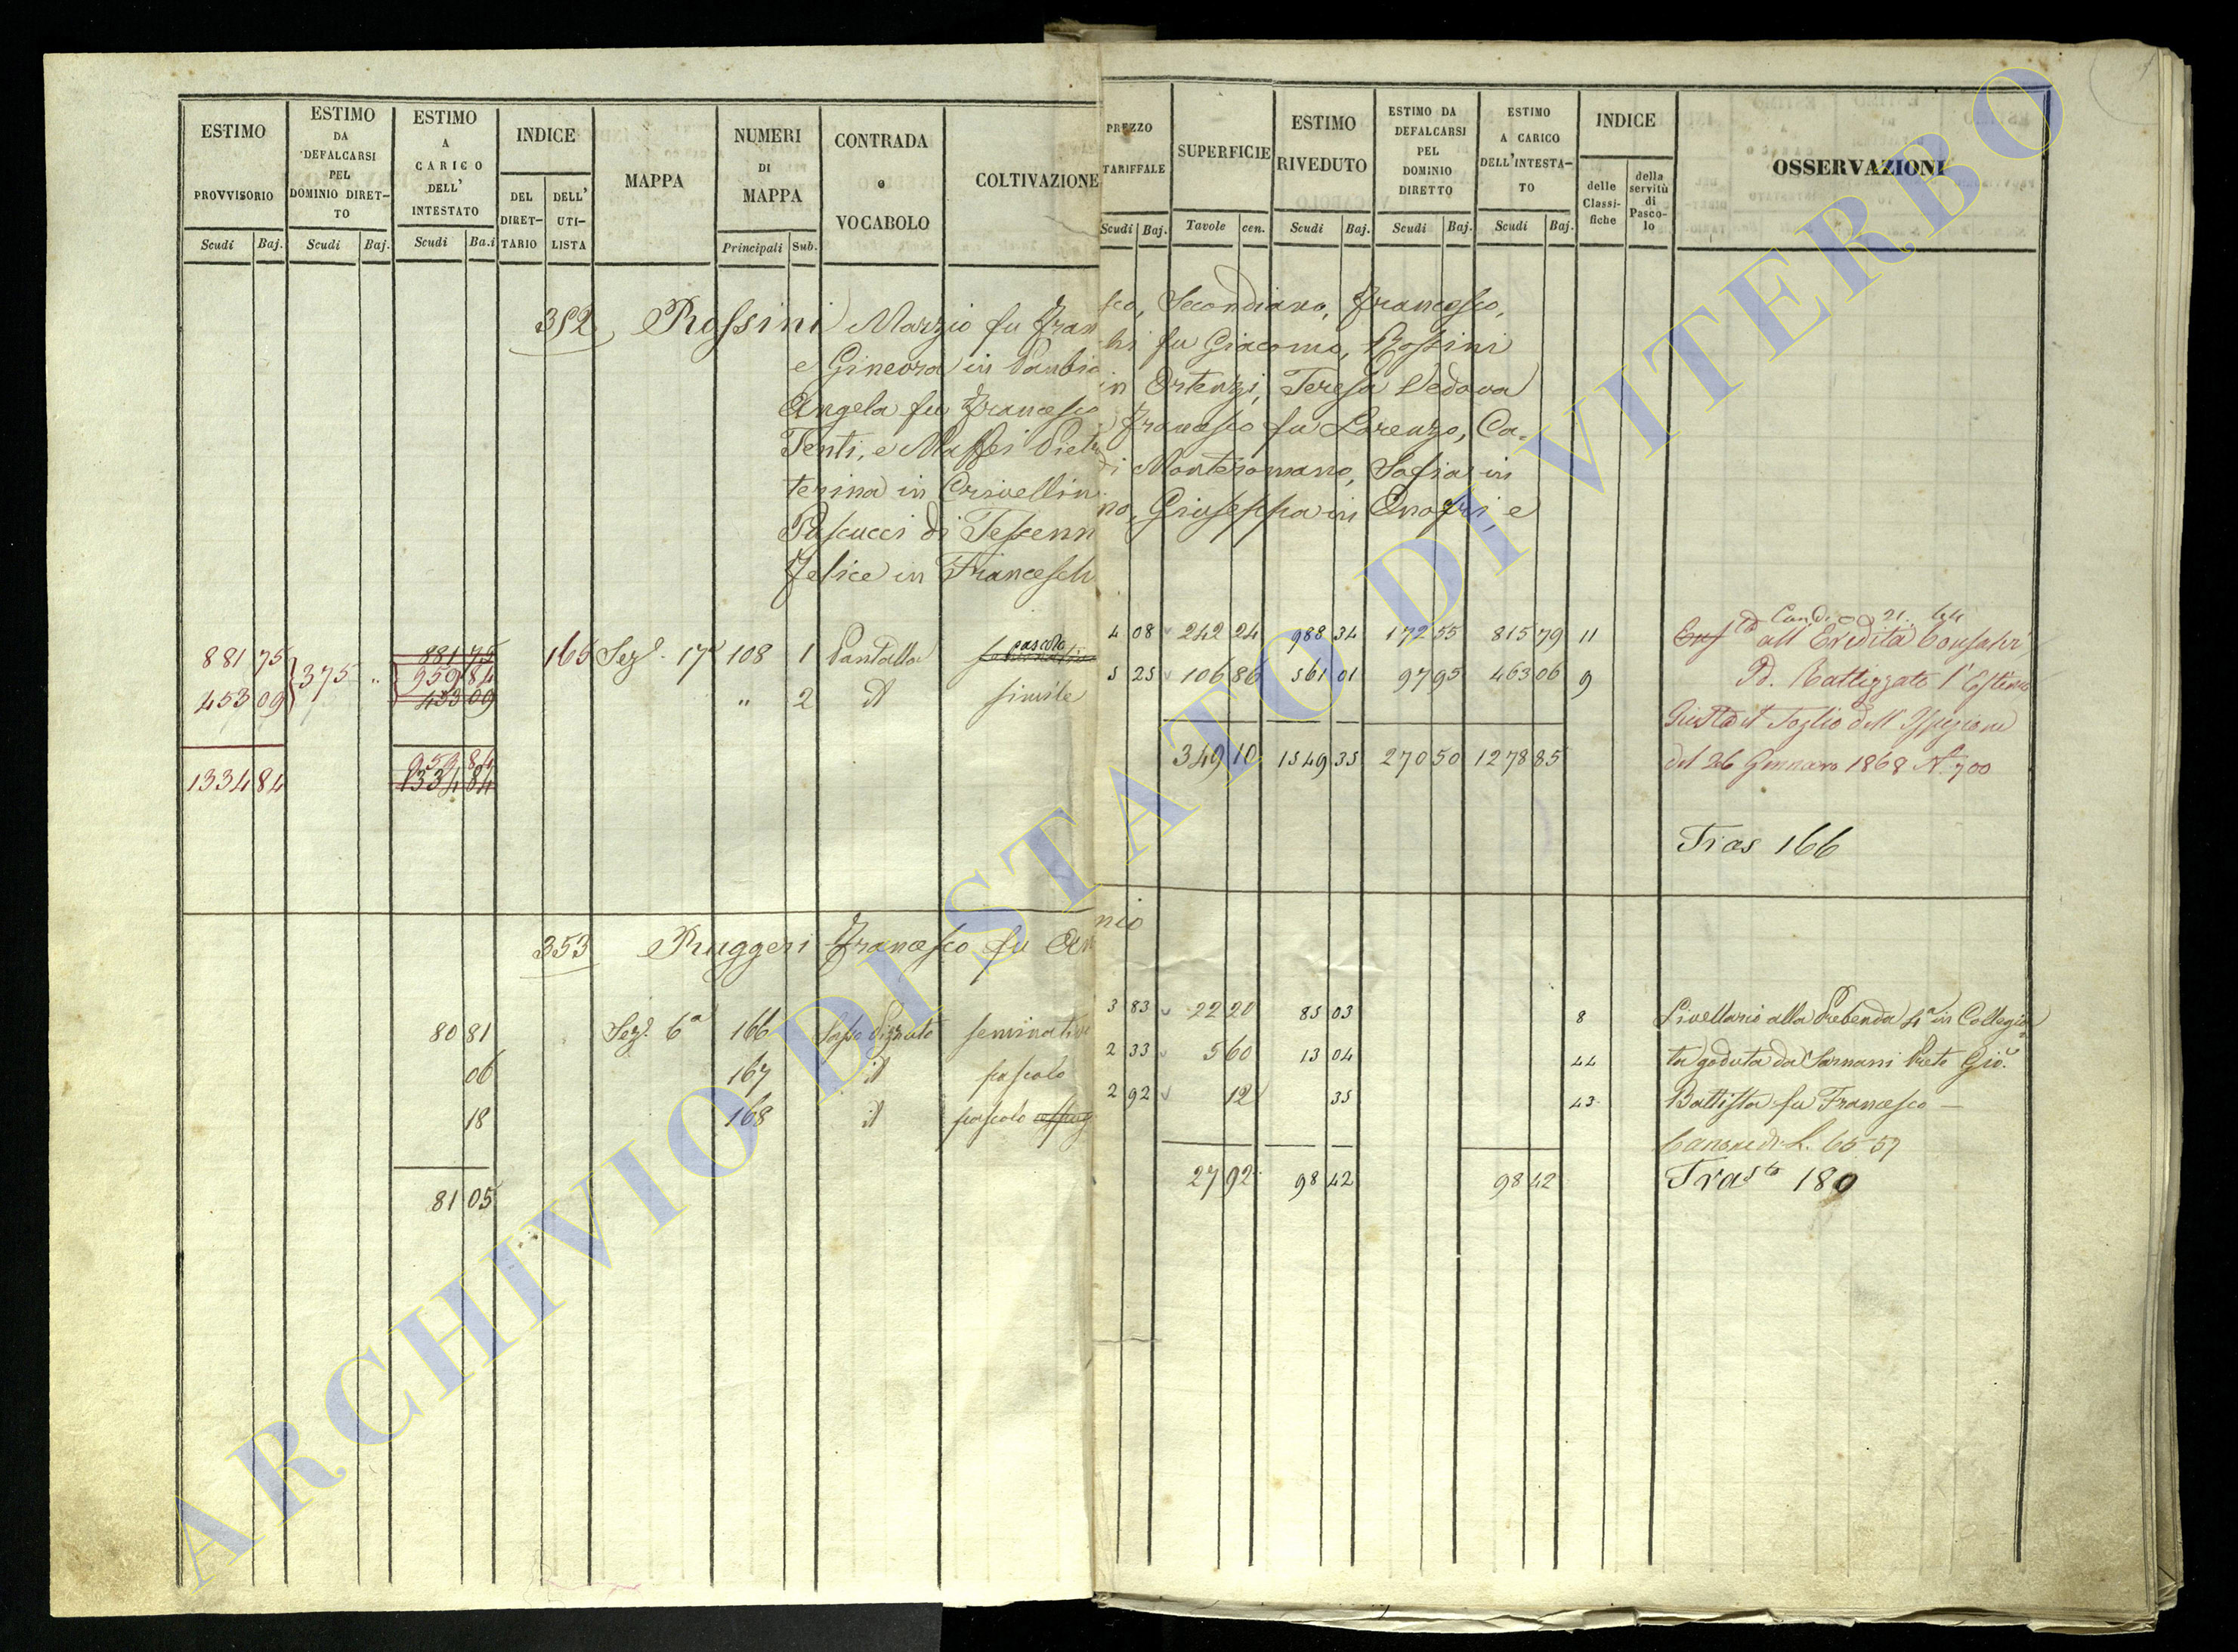 ESTIMO PROVVISORIO
ESTIMO DA DEFALCARSI PEL DOMINIO DIRET-TO
ESTIMO A CARICO DELL' INTESTATO
INDICE
DEL DIRET-TARIO
DELL' UTI-LISTA
MAPPA
NUMERI DI MAPPA
CONTRADA o VOCABOLO
COLTIVAZIONE
PREZZO TARIFFALE
SUPERFICIE
ESTIMO RIVEDUTO
ESTIMO DA DEFALCARSI PEL DOMINIO DIRETTO
ESTIMO A CARICO DELL'INTESTA-TO
INDICE
delle Classi-fiche
della servitù di Pasco-lo
OSSERVAZIONI
Scudi Baj. Scudi Baj. Scudi Ba.i Principali Sub. Scudi Baj. Tavole cen. Scudi Baj. Scudi Baj. Scudi Baj.
352 Rossini Marzio fu Fran sco, Secondiano, Francesco,
e Ginevra in chi fu Giacomo, Rossini
Angela fu Francesco in Ortenzi, Teresa Vedova
Tenti, e Maffei Pietro Francesco fu Lorenzo, Ca=
terina in Crivellin di Monteromano, Sofia in
Pascucci di Tessenn no, Giuseppa in Onofri, e
Felice in Francesch
881 75 375 " 881 75 165 Sez. 17 108 1 Pantalla pascolo 4 08 242 24 988 34 172 55 815 79 11
959 84
453 09 453 09 " 2 id simile 5 25 106 86 561 01 97 95 463 06 9
959 84
1334 84 1334 84 349 10 1549 35 270 50 1278 85
all Eredità
Pd. Rettizzato l'Estimo
Giusta il Foglio dell'Ispezione
del 26 Gennaro 1868 N. 700
Tras 166
353 Ruggeri Francesco fu An nio
80 81 Sez. 6a 166 Sasso Pizzuto seminativo 3 83 22 20 85 03 8 Livellario alla Prebenda 4a in Collegia=
06 167 id pascolo 2 33 5 60 13 04 44 ta goduta da Sarnani Prete Gio.
18 168 id pascolo 2 92 12 35 43 Battista fu Francesco —
Canone di L. 65 59
81 05 27 92 98 42 98 42 Trasto 180
ARCHIVIO DI STATO DI VITERBO